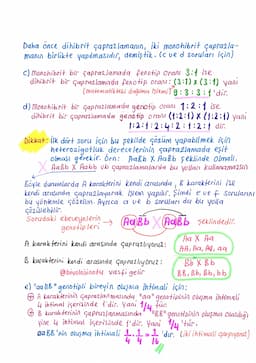 Daha önce dihibrit çaprazlamanın, iki monohibrit çaprazla-
manın birlikte yapılmasıdır, demiştik. (c ve d soruları için)
c) Monohibrit bir çaprazlamada fenotip oranı 3:1 ise
dihibrit bir çaprazlamada fenotip oranı: (3:1) x (3:1) yani
(matematikteki dağılma işlemi) 9:3:3:1'dir.
d) Monohibrit bir çaprazlamada genotip oranı 1:2:1 ise
dihibrit bir çaprazlamada genotip oranı (1:2:1) x (1:2:1) yani
1:2:1:2:4:2:1:2:1 dir.
Dikkat: İlk dört soru için bu şekilde çözüm yapabilmek için
heterozigotluk derecelerinin çaprazlamada eşit
olması gerekir. Örn: AaBb X AaBb şeklinde olmalı.
X AaBb X Aabb vb çaprazlamalarda bu yoldan kullanamazsın
Böyle durumlarda A karakterini kendi arasında, B karakterini ise
kendi arasında çaprazlayarak işlem yapılır. Şimdi e ve f sorularını
bu yöntemle çözelim. Ayrıca a ve b soruları da bu yolla
çözülebilir.
Sorudaki ebeveynlerin
genotipleri → AaBb X AaBb şeklindedir.
A karakterini kendi arasında çaprazlıyoruz: Aa X Aa
AA, Aa, Aa, aa
B karakterini kendi arasında çaprazlıyoruz: Bb X Bb
BB, Bb, Bb, bb
e) "aaBB" genotipli bireyin oluşma ihtimali için:
A karakterinin çaprazlamasında "aa" genotipinin oluşma ihtimali
4 ihtimal içerisinde 1'dir. Yani 1/4 tür.
B karakterinin çaprazlamasında "BB" genotipinin oluşma olasılığı
yine 4 ihtimal içerisinde 1'dir. Yani 1/4'tür.
aaBB'nin oluşma ihtimali 1/4 . 1/4 = 1/16 'dır.